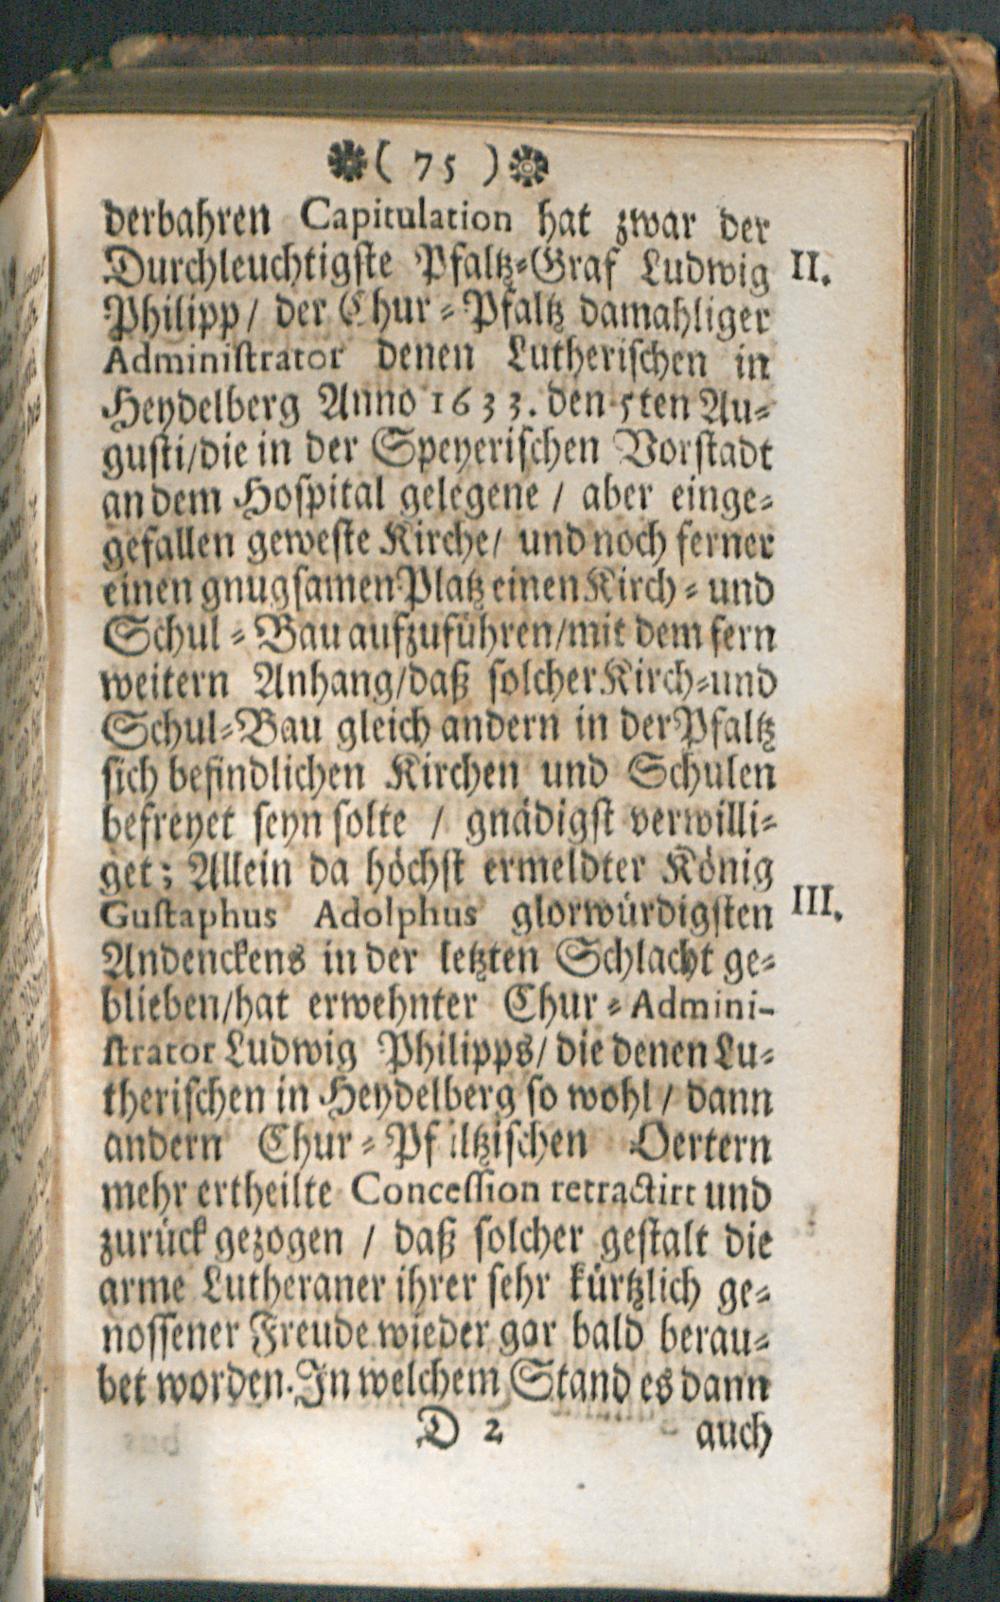 ( 75 )
derbahren Capitulation hat zwar der
Durchleuchtigste Pfaltz-Graf Ludwig II.
Philipp / der Chur-Pfaltz damahliger
Administrator denen Lutherischen in
Heydelberg Anno 1633. den 5ten Au-
gusti/die in der Speyerischen Vorstadt
an dem Hospital gelegene / aber einge-
gefallen geweste Kirche/ und noch ferner
einen gnugsamen Platz einen Kirch- und
Schul-Bau aufzuführen/mit dem fern
weitern Anhang/daß solcher Kirch-und
Schul-Bau gleich andern in der Pfaltz
sich befindlichen Kirchen und Schulen
befreyet seyn solte / gnädigst verwilli-
get; Allein da höchst ermeldter König
Gustaphus Adolphus glorwürdigsten III.
Andenckens in der letzten Schlacht ge-
blieben/hat erwehnter Chur-Admini-
strator Ludwig Philipps/ die denen Lu-
therischen in Heydelberg so wohl / dann
andern Chur-Pf ltzischen Oertern
mehr ertheilte Concession retractirt und
zurück gezogen / daß solcher gestalt die
arme Lutheraner ihrer sehr kürtzlich ge-
nossener Freude wieder gar bald berau-
bet worden. In welchem Stand es dann
D 2 auch